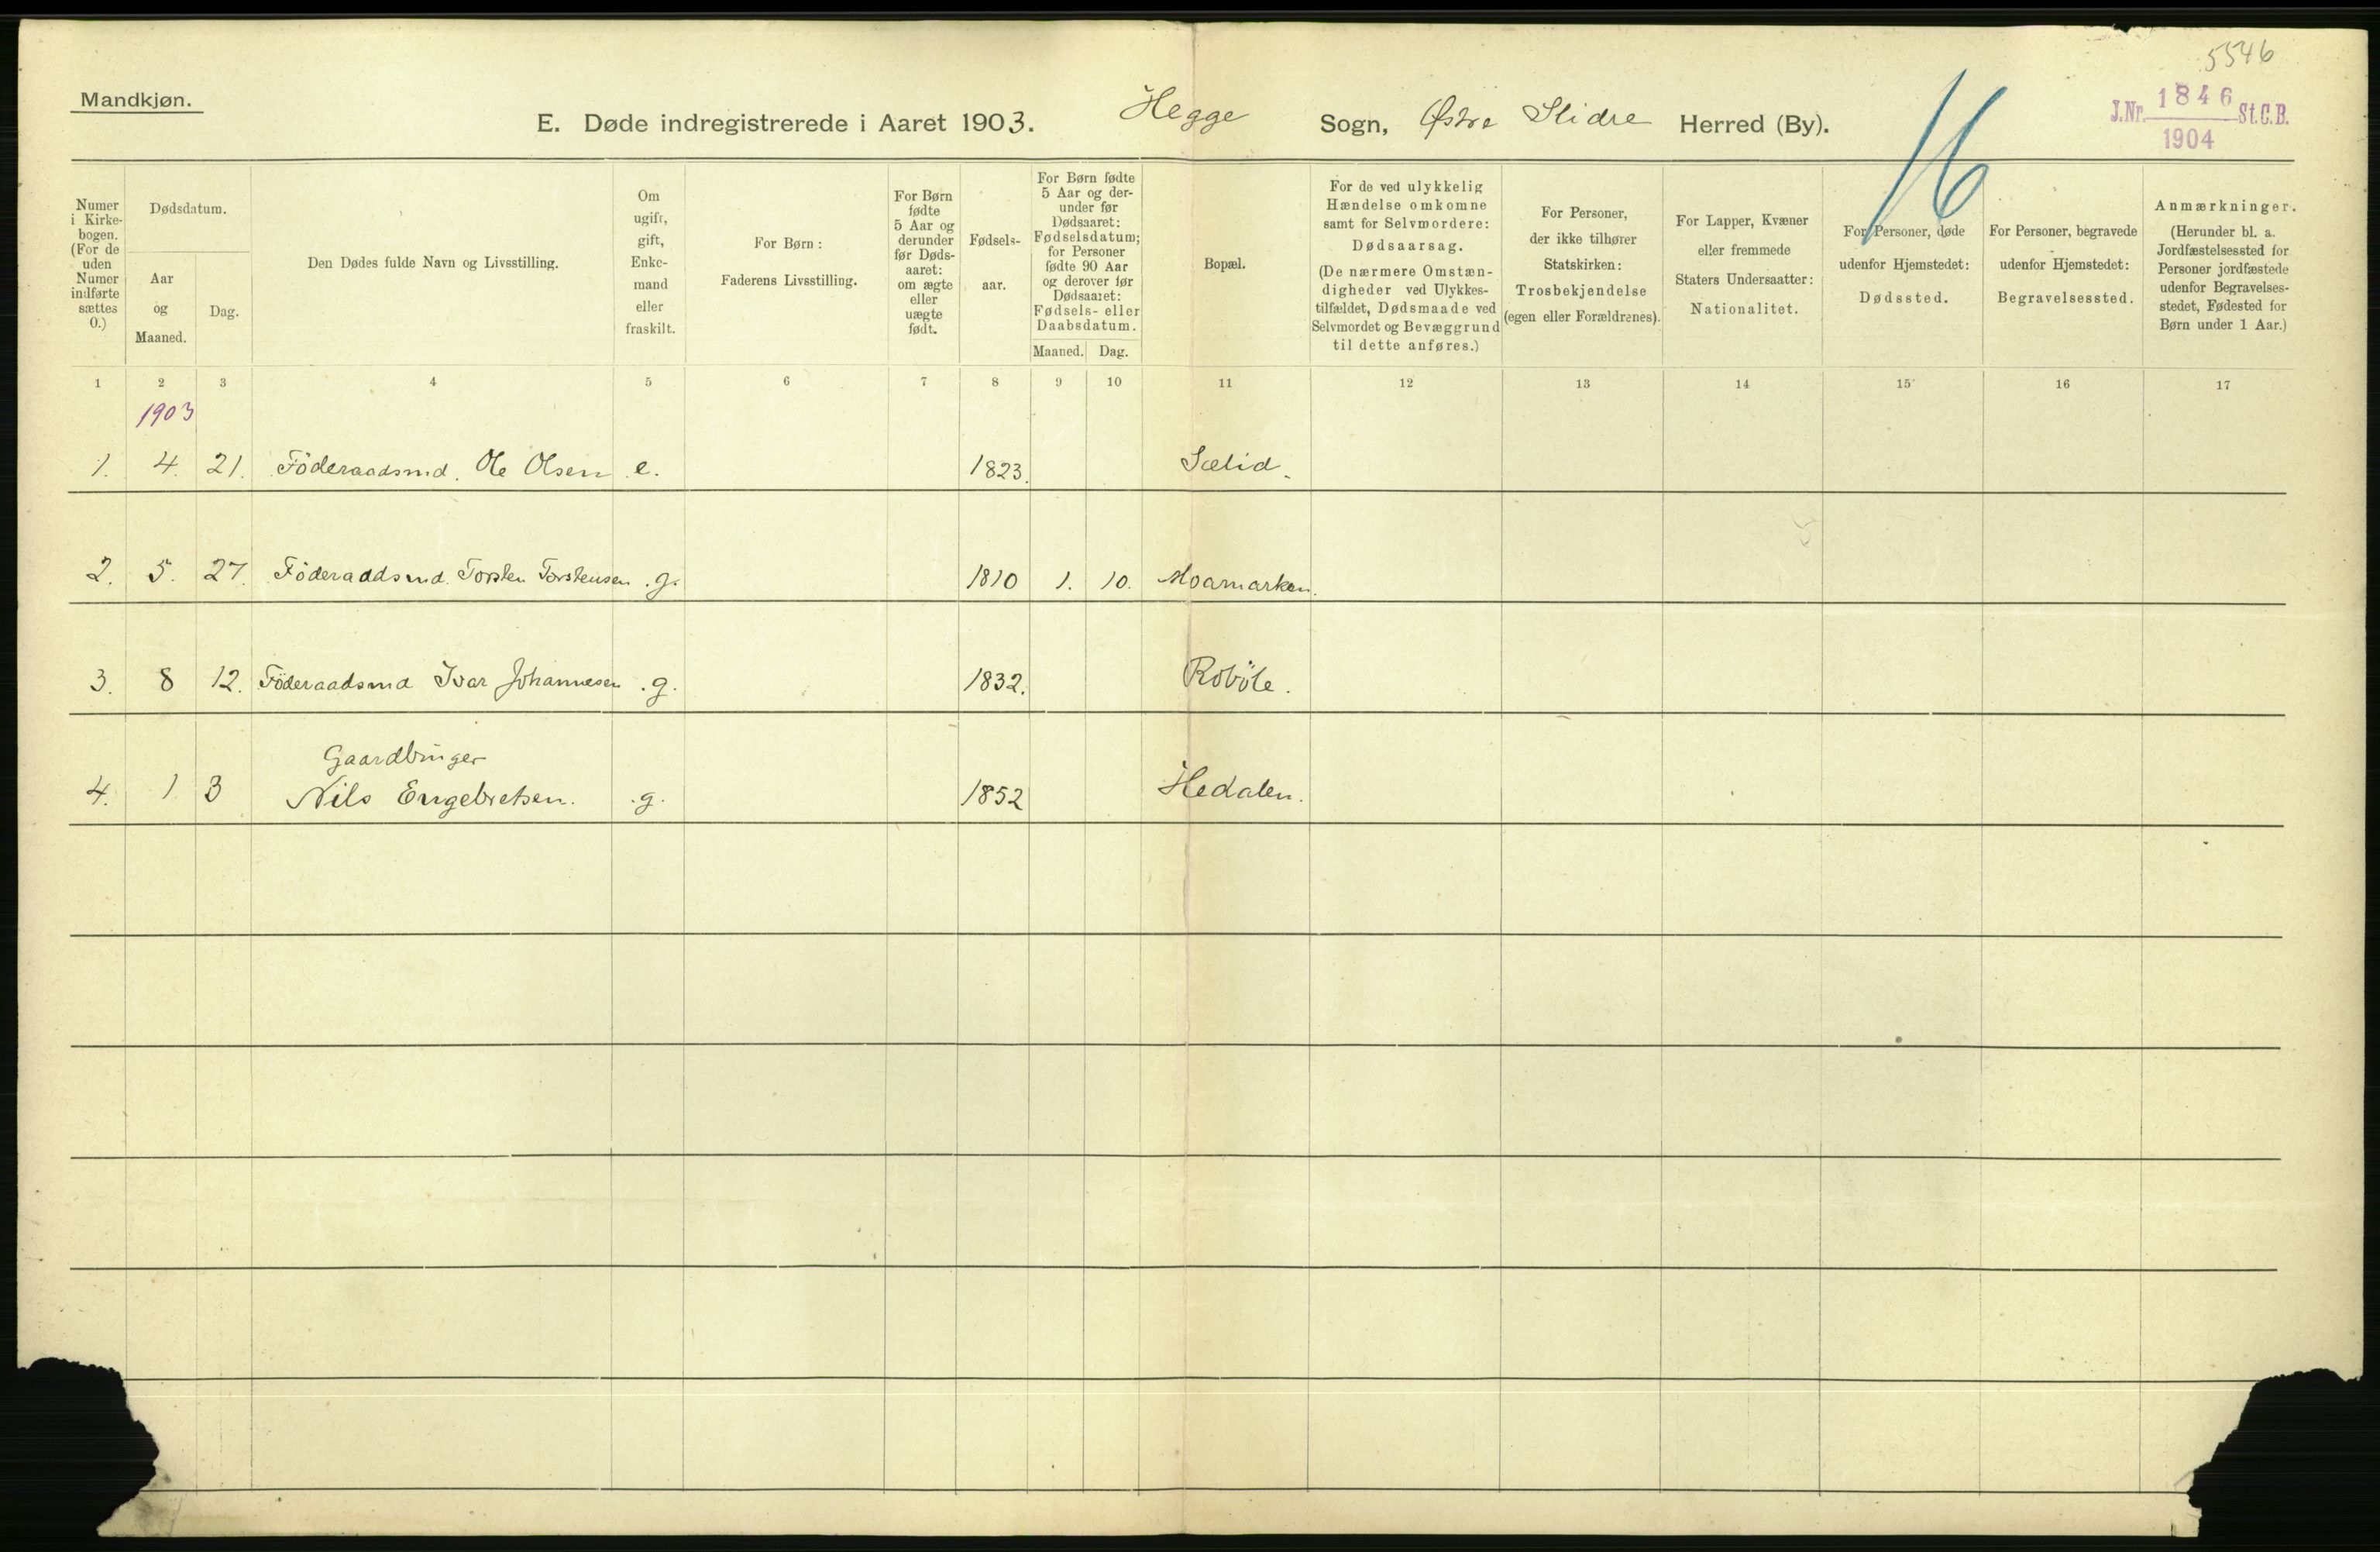 5546
Mandkjøn.
E. Døde indregistrerede i Aaret 1903. Hegge Sogn, Østre Slidre Herred (By).
16
J.Nr. 1846 St.C.B.
1904
Numer i Kirkebogen. (For de uden Numer indførte sættes 0.)
Dødsdatum.
Aar og Maaned.
Dag.
Den Dødes fulde Navn og Livsstilling.
Om ugift, gift, Enkemand eller fraskilt.
For Børn: Faderens Livsstilling.
For Børn fødte 5 Aar og derunder før Dødsaaret: om ægte eller uægte født.
Fødselsaar.
For Børn fødte 5 Aar og derunder før Dødsaaret: Fødselsdatum; for Personer fødte 90 Aar og derover før Dødsaaret: Fødsels- eller Daabsdatum.
Maaned. Dag.
Bopæl.
For de ved ulykkelig Hændelse omkomne samt for Selvmordere: Dødsaarsag. (De nærmere Omstændigheder ved Ulykkestilfældet, Dødsmaade ved Selvmordet og Bevæggrund til dette anføres.)
For Personer, der ikke tilhører Statskirken: Trosbekjendelse (egen eller Forældrenes).
For Lapper, Kvæner eller fremmede Staters Undersaatter: Nationalitet.
For Personer, døde udenfor Hjemstedet: Dødssted.
For Personer, begravede udenfor Hjemstedet: Begravelsessted.
Anmærkninger. (Herunder bl. a. Jordfæstelsessted for Personer jordfæstede udenfor Begravelsesstedet, Fødested for Børn under 1 Aar.)
1 2 3 4 5 6 7 8 9 10 11 12 13 14 15 16 17
1903
1. 4. 21. Föderaadsmd. Ole Olsen e. 1823. Sælid.
2. 5. 27. Föderaadsmd. Torsten Torstensen .g. 1810 1. 10. Moamarken.
3. 8 12. Föderaadsmd Ivar Johannesen .g. 1832. Roböle.
Gaardbruger
4. 1 3 Nils Engebretsen. .g. 1852 Hedalen.